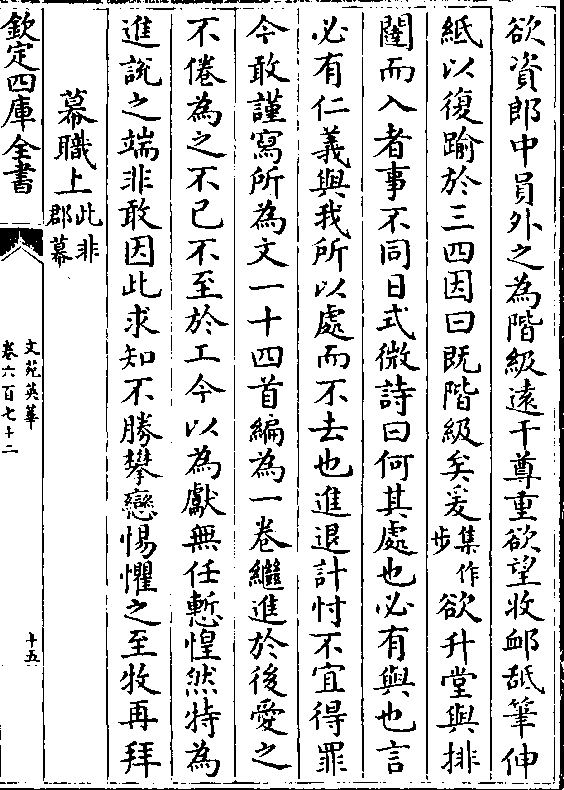 欲資郎中員外之為階級遠干尊重欲望收䘏舐筆伸
紙以復踰於三四因曰既階級矣爰集作步欲升堂與排
闥而入者事不同日式微詩曰何其處也必有與也言
必有仁義與我所以處而不去也進退計忖不宜得罪
今敢謹寫所為文一十四首編為一卷繼進於後愛之
不倦為之不已不至於工今以為獻無任慙惶然特為
進說之端非敢因此求知不勝攀戀惕懼之至牧再拜
幕職上此非郡幕
欽定四庫全書
文苑英華
卷六百七十二
十五